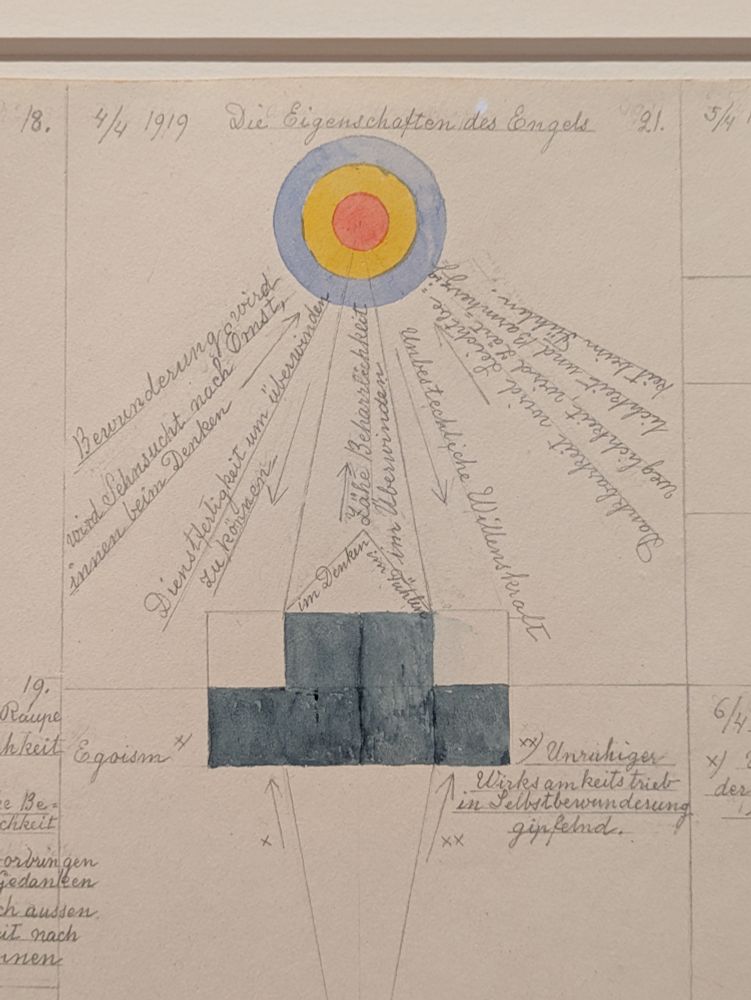 18.
4/4 1919 Die Eigenschaften des Engels 21.
5/4
Bewunderung wird
wird Sehnsucht nach Ernst,
innen beim Denken
Dienstfertigkeit um überwinden
zu können
Zähe Beharrlichkeit
im Überwinden
im Denken
im Fühlen
Unbestechliche Willenskraft
Dankbarkeit wird Leichtbe-
weglichkeit, wird Zärt-
lichkeit und Barmherzig-
keit beim Fühlen.
19.
Raupe
hkeit
ke Be-
chkeit
orbringen
Gedanken
ch aussen.
eit nach
innen
Egoism x)
xx) Unruhiger
Wirksamkeitstrieb
in Selbstbewunderung
gipfelnd.
x
xx
6/4
x)
der